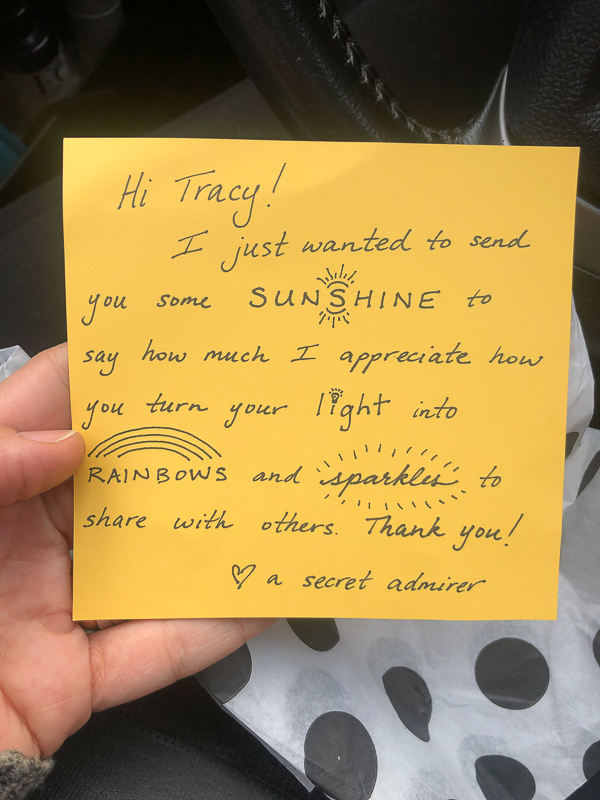 Hi Tracy!
I just wanted to send
you some SUNSHINE to
say how much I appreciate how
you turn your light into
RAINBOWS and sparkles to
share with others. Thank you!
♡ a secret admirer